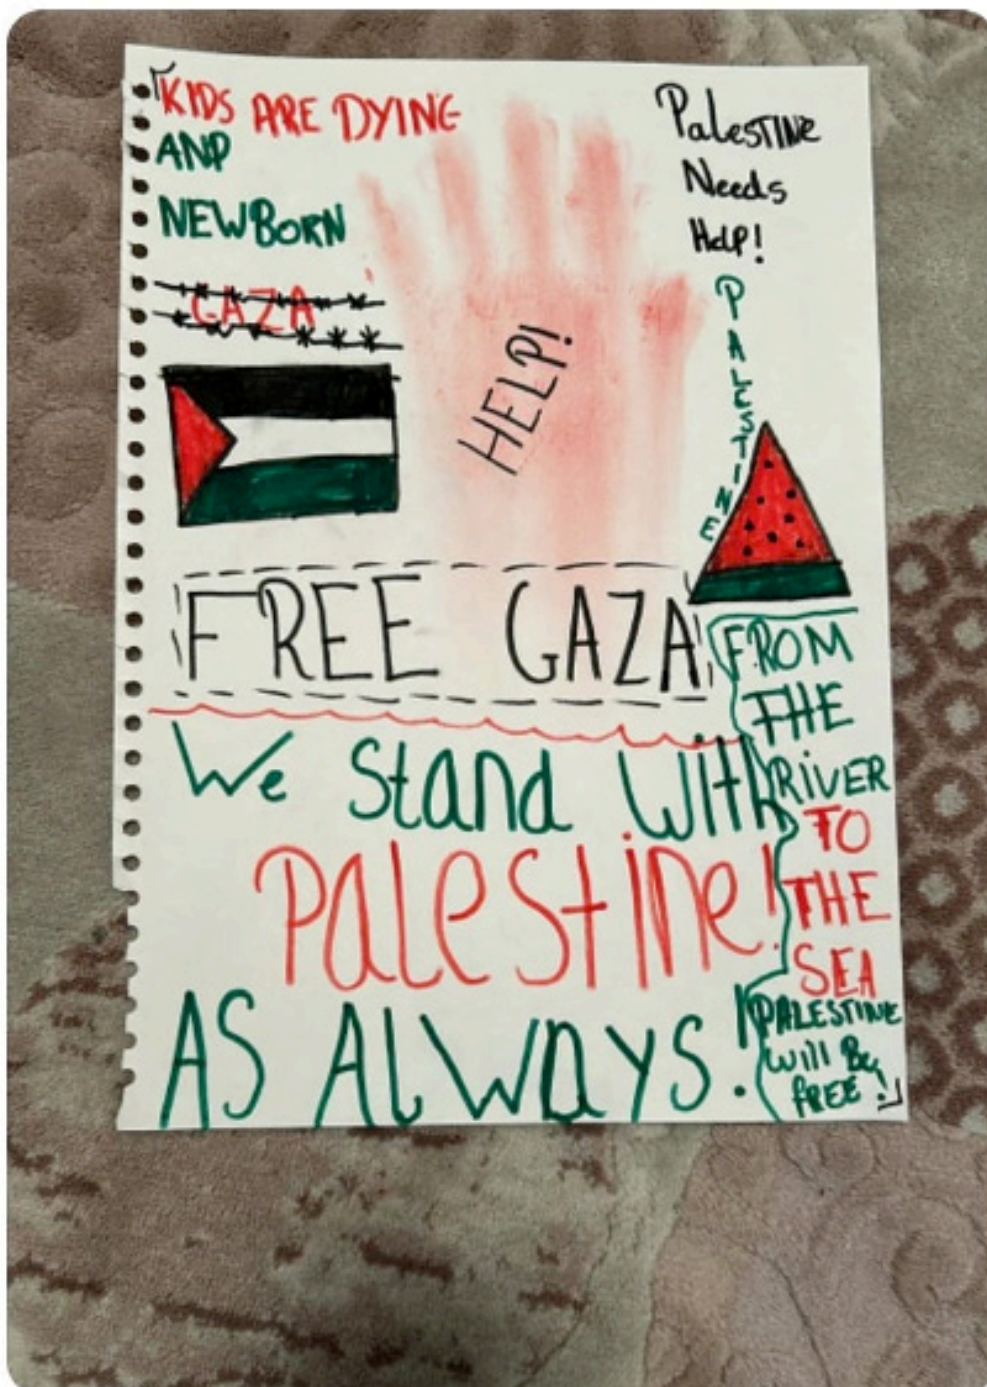 KIDS ARE DYING
AND
NEWBORN
GAZA
Palestine
Needs
Help!
HELP!
PALESTINE
FREE GAZA
We Stand With
Palestine!
AS Always.
FROM
THE
RIVER
TO
THE
SEA
PALESTINE
will Be
fREE!